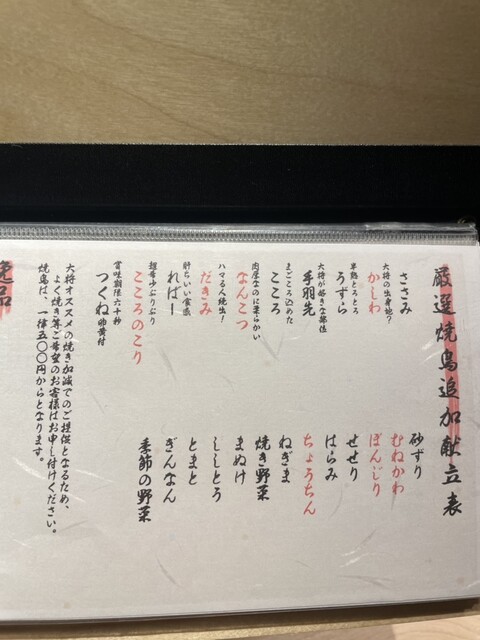 厳選焼鳥追加献立表
ささみ
大将の出身地?
かしわ
半熟とろとろ
うずら
大将が好きな部位
手羽先
まごころ込めた
こころ
肉厚なのに柔らかい
なんこつ
ハマる人続出!
だきみ
肝ちいい食感
ればー
超希少ぷりぷり
こころのこり
賞味期限六十秒
つくね卵黄付
砂ずり
むねかわ
ぼんじり
せせり
はらみ
ちょうちん
ねぎま
焼き野菜
まぬけ
ししとう
とまと
ぎんなん
季節の野菜
大将オススメの焼き加減でのご提供となるため、
よく焼き等ご希望のお客様はお申し付けください。
焼鳥は、一律五〇〇円からとなります。
逸品